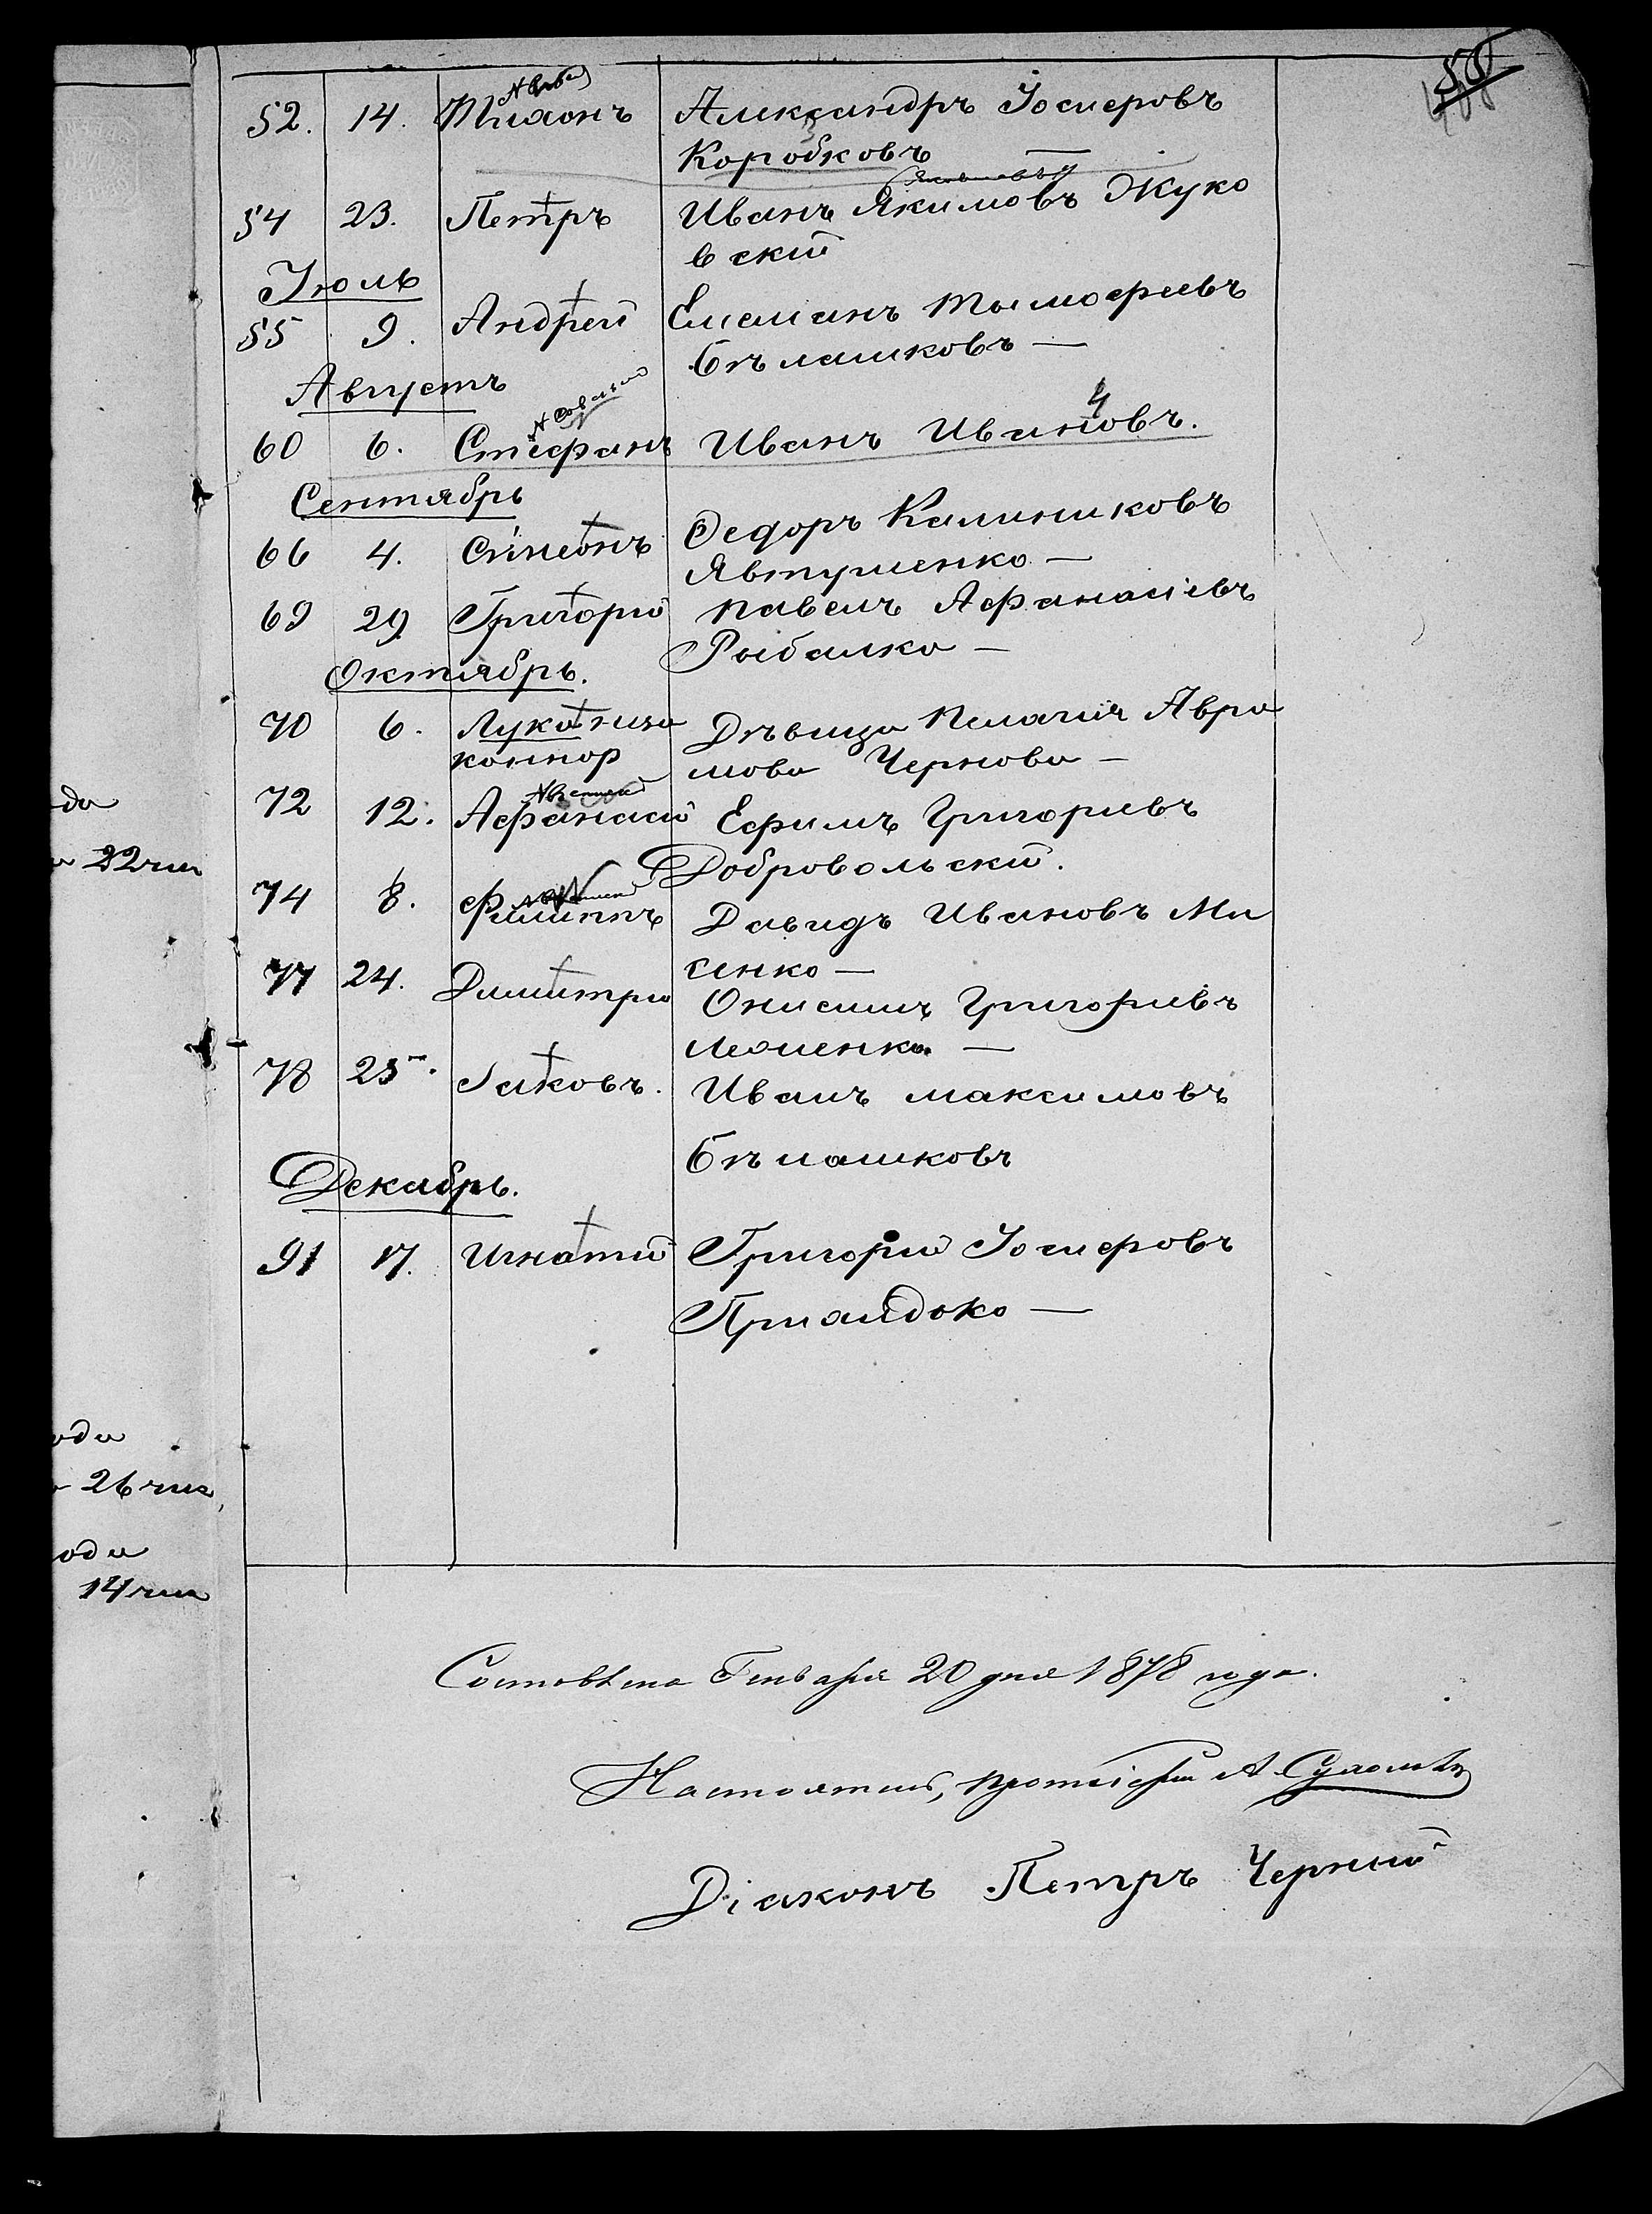 52. 14. Тихонъ Александръ Іосифовъ
Коробковъ
54 23. Петръ Иванъ Якимовъ Жуко
вскій
Іюль
55 9. Андрей Емелианъ Тымофеевъ
Бѣлашковъ —
Августъ
60 6. Стефанъ Иванъ Ивановъ.
4
Сентябрь
66 4. Сѵмеонъ Федоръ Калиниковъ
Явтушенко —
69 29 Григорій Павелъ Афанасіевъ
Рыбалка —
Октябрь.
70 6. Лука Дѣвица Пелагія Авра
мова Чернова —
72 12. Афанасій Ефимъ Григориевъ
Добровольскій.
74 8. Филиппъ Давидъ Ивановъ Ми
сенко —
77 24. Димитрій Онисимъ Григориевъ
78 25. Іаковъ. Иванъ Максимовъ
Бѣлашковъ
Декабрь.
91 17. Игнатій Григорій Іосифовъ
да
22
ода
26
ода
14
Составлена Генваря 20 дня 1878 года.
Настоятель, протоіерей А
Діаконъ Петръ Черный